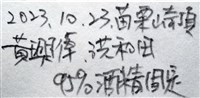 2023.10.23.苗栗崎頂
黃興倬、洪和田
95%酒精固定